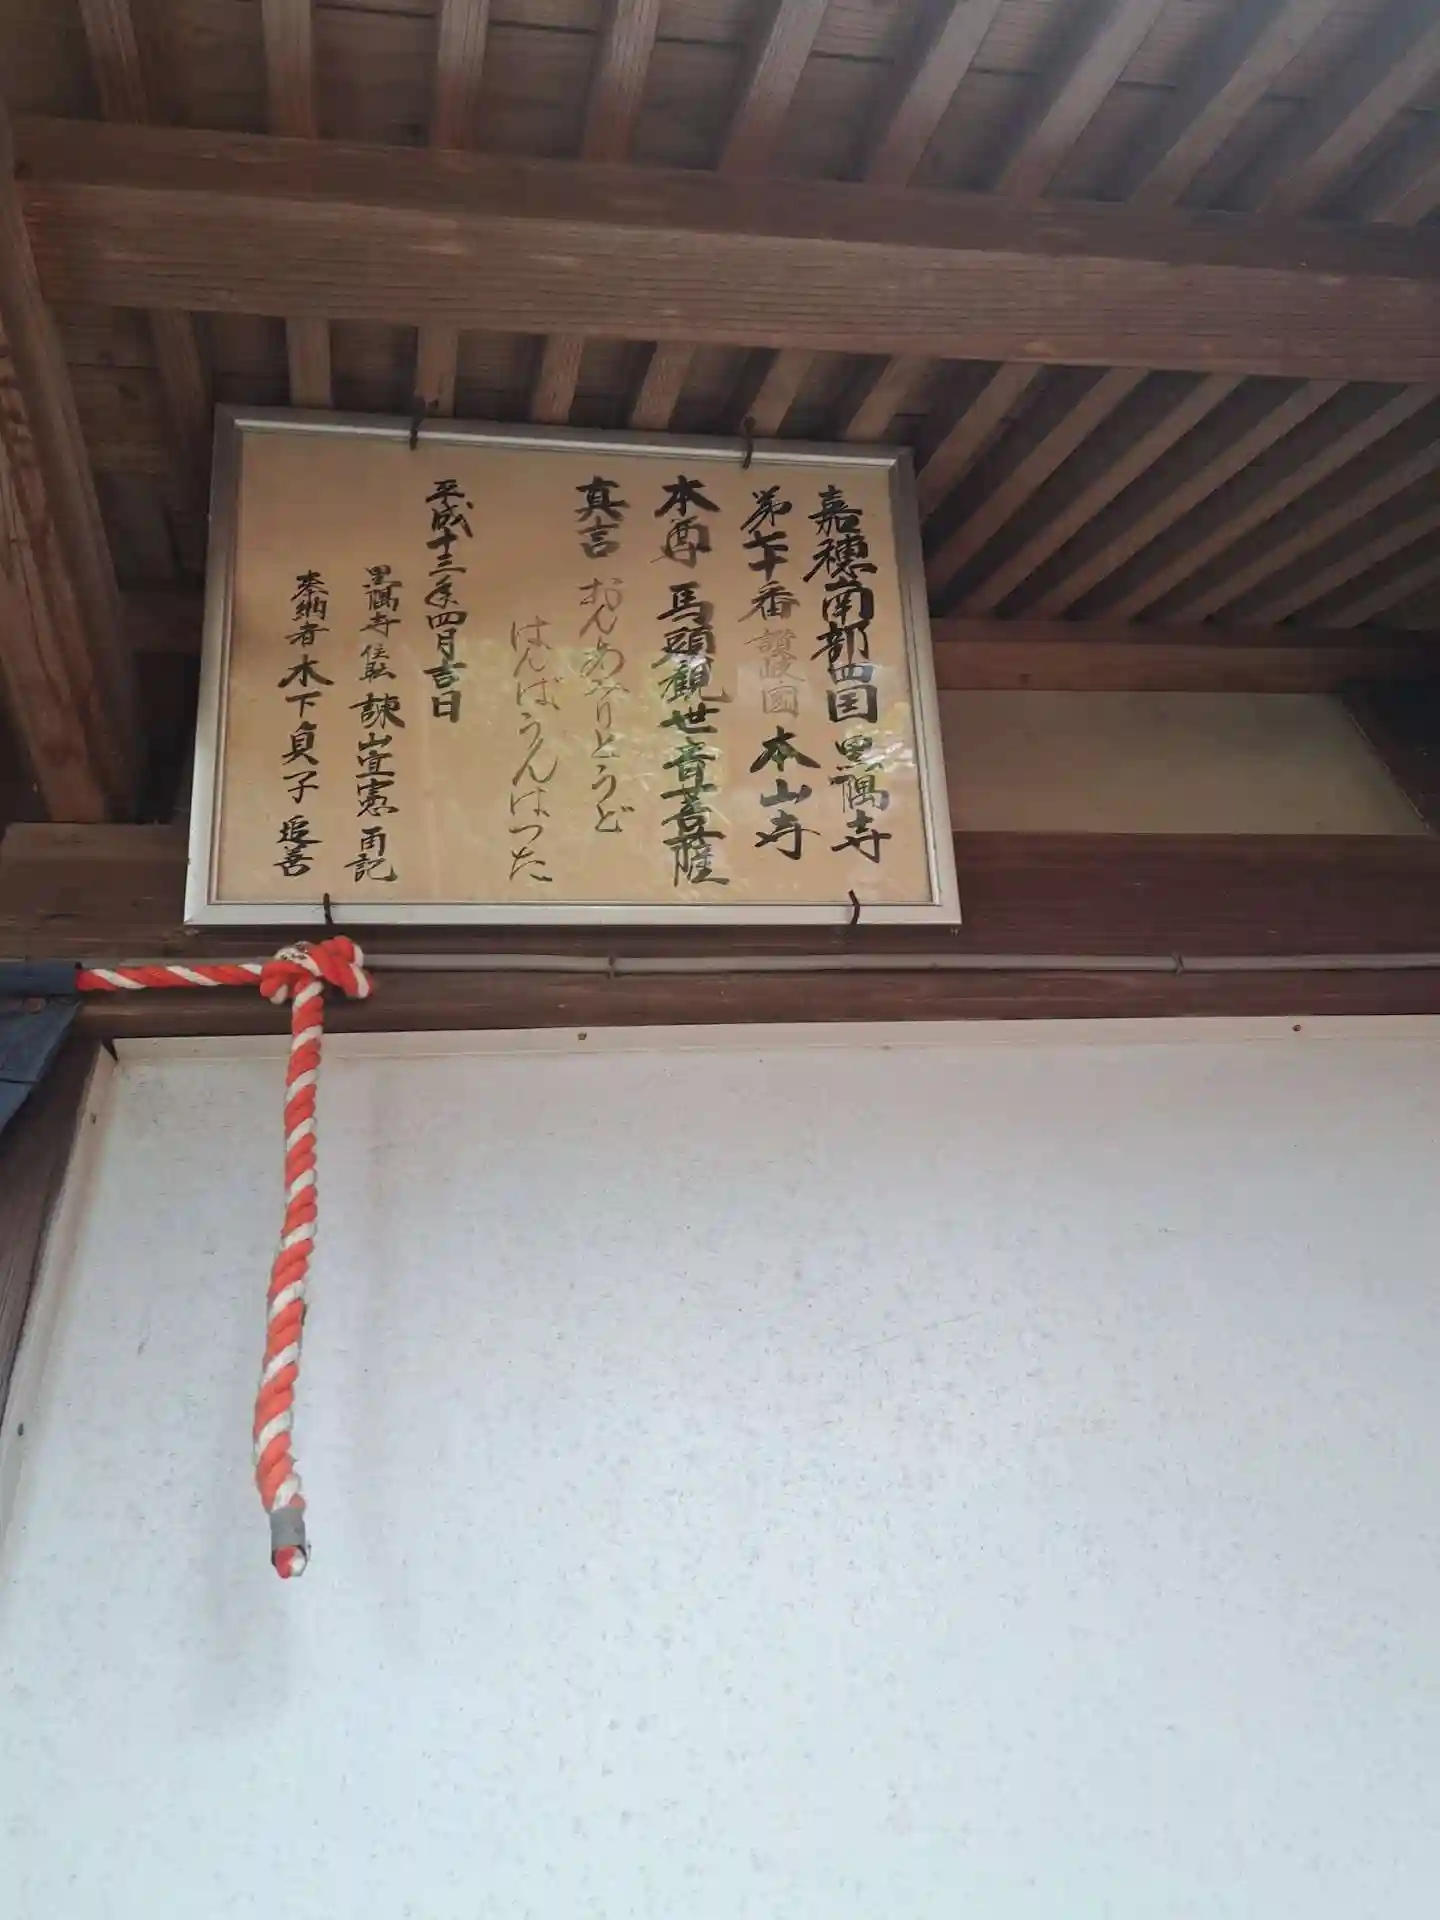 嘉穂南部四国 黒隅寺
第七十番 讃岐國 本山寺
本尊 馬頭観世音菩薩
真言 おんあみりとうど
はんばうんはつた
平成十三年四月吉日
黒隅寺 住職 諌山宜憲 再記
奉納者 木下貞子 追善